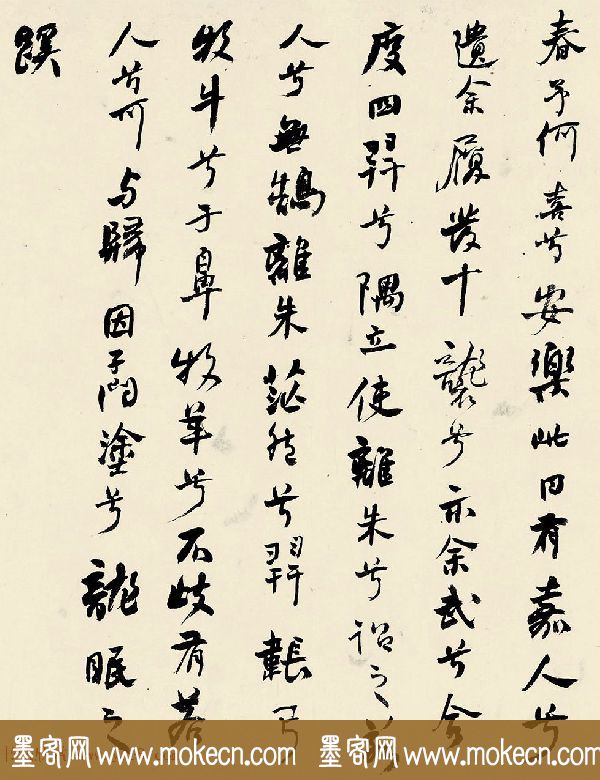 春予何喜兮安樂此田有嘉人兮
遺余履發十襲兮示余武兮舍
度四羿兮隅立使離朱兮詔之
人兮無鵠離朱茫然兮羿韔弓
牧牛兮于鼻牧羊兮不歧有若
人兮可與歸因子問塗兮龍眠之
蹊
墨客网 www.mokecn.com 墨客网 www.mokecn.com